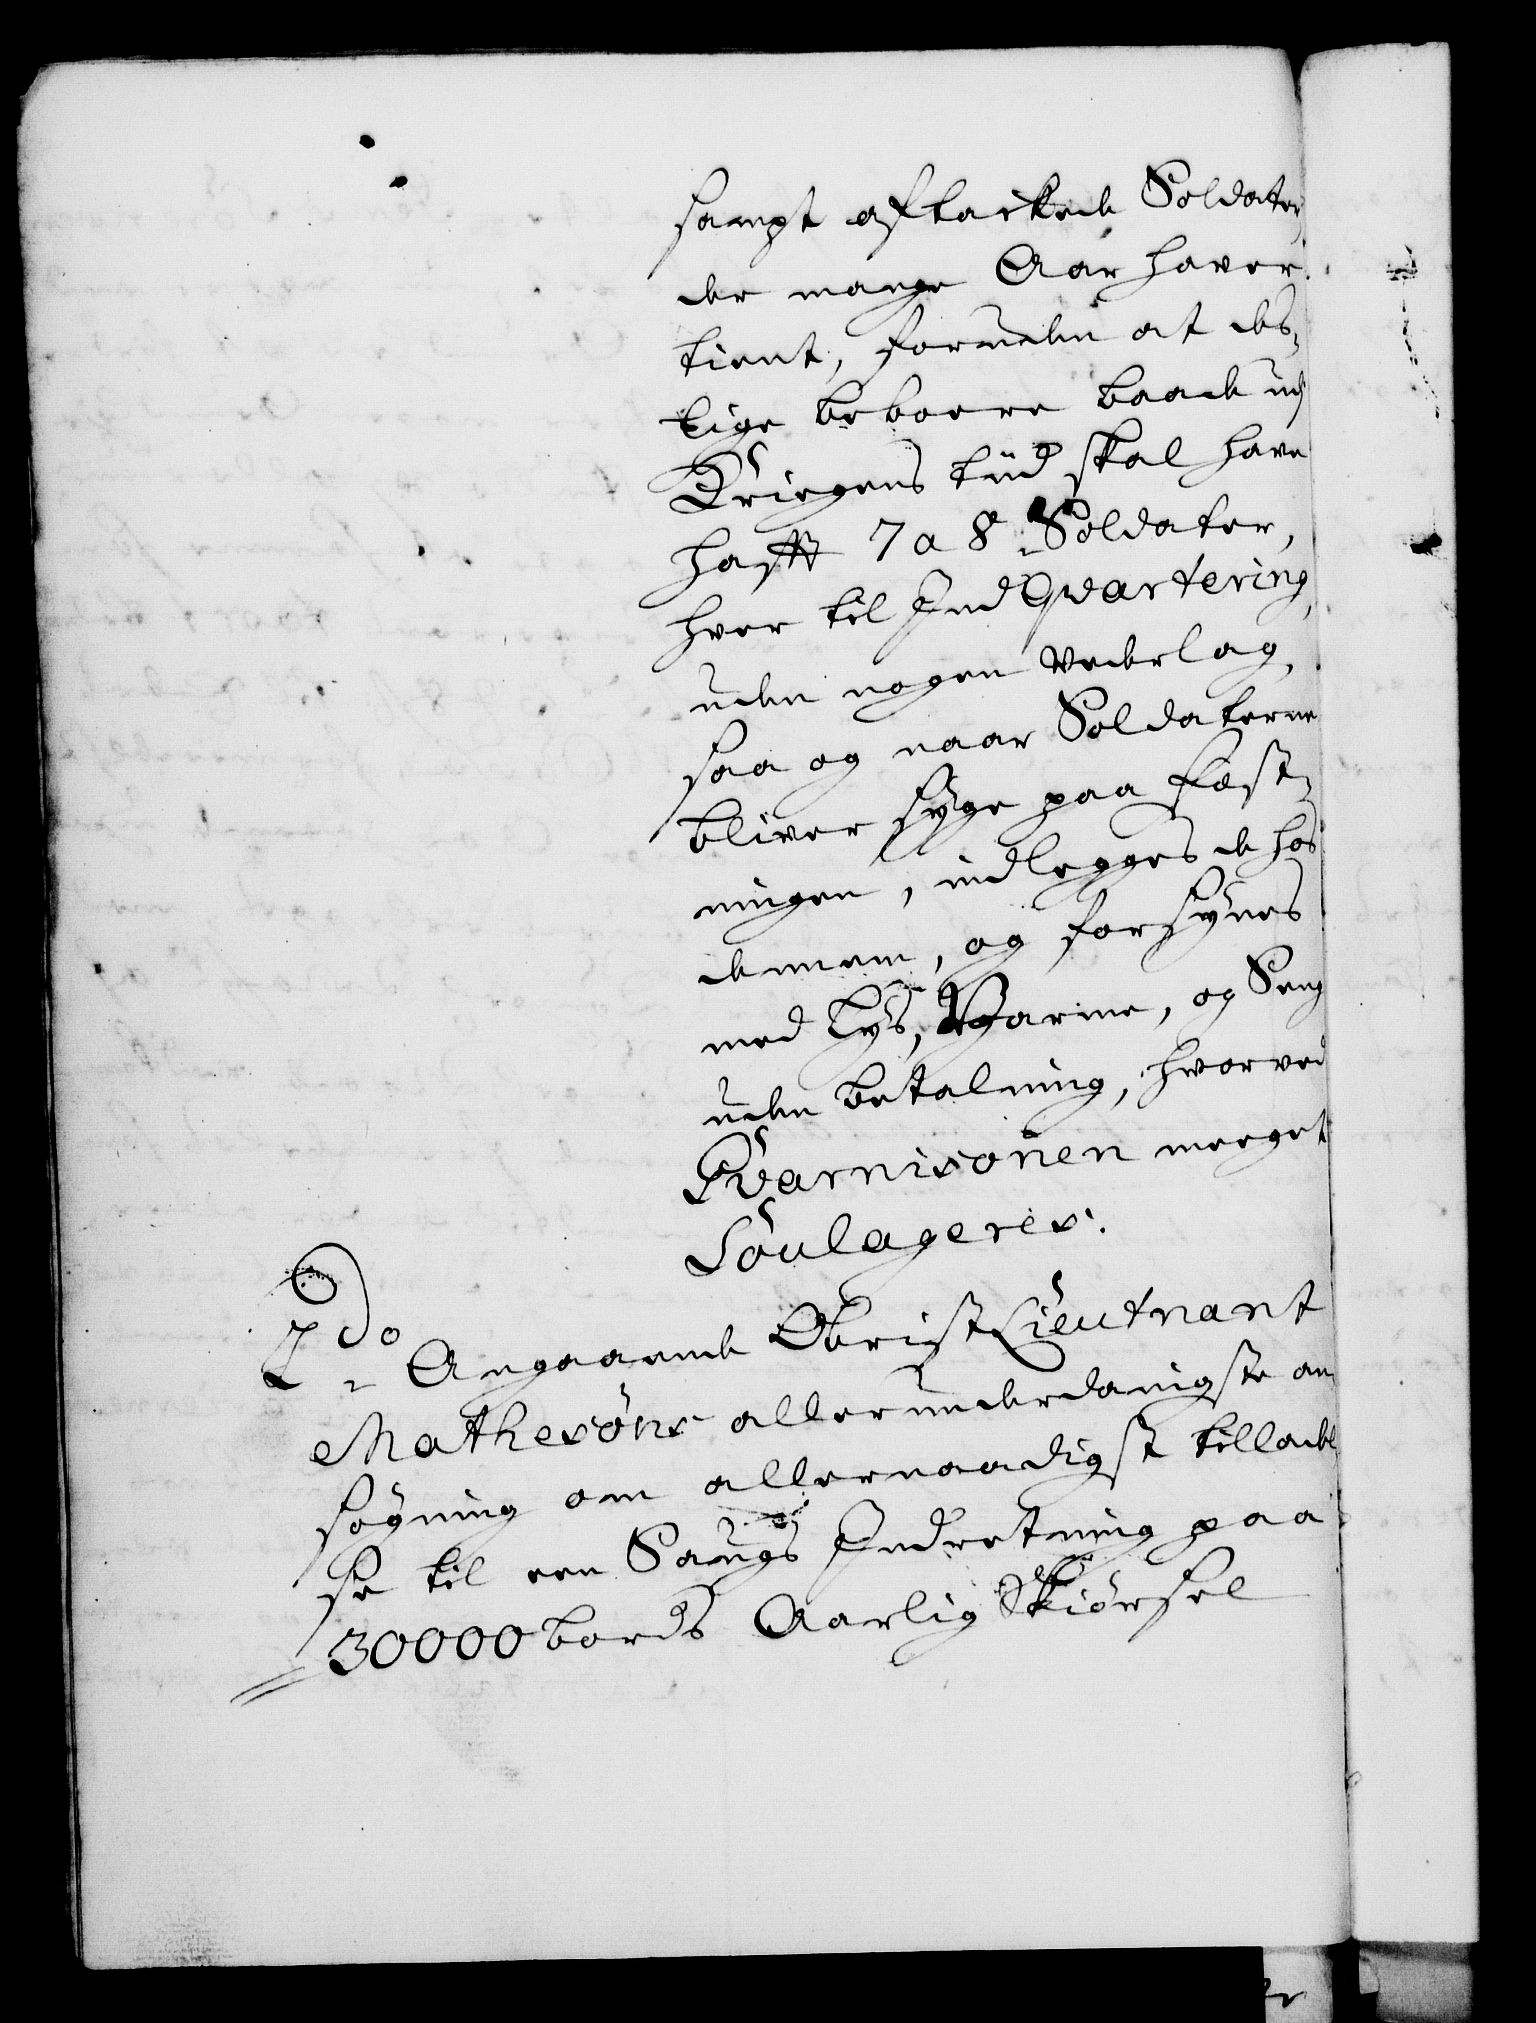 sampt aftackede Soldater,
der mange Aar haver
tient, foruden at des„
lige beboere baade udj
Kriegens tiid skal have
hafft 7 a 8 Soldater,
hver til Ind Qvartering,
uden nogen Vederlag,
saa og naar Soldaterne
bliver syge paa Fæst„
ningen, indlegges de hos
dennem, og forsynes
med Lys, Varme, og Seng
uden betalning, hvorved
Gvarnisonen meeget
Soulageres.
2do Angaaende Obrist Lieutnant
Mathesons allerunderdanigste an„
søgning om allernaadigst tilladel„
se til een Saugs Indretning paa
30000 bords Aarlig Skiørsel